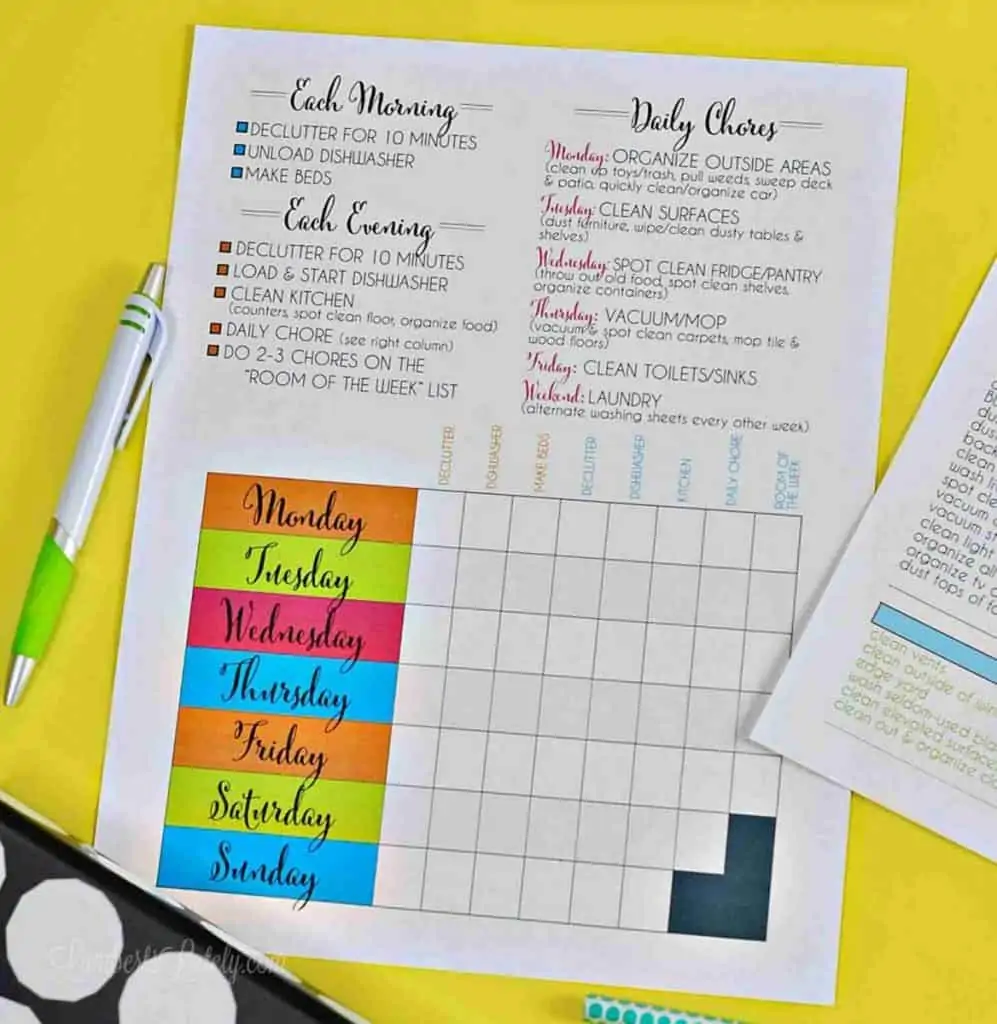 Each Morning
DECLUTTER FOR 10 MINUTES
UNLOAD DISHWASHER
MAKE BEDS
Each Evening
DECLUTTER FOR 10 MINUTES
LOAD & START DISHWASHER
CLEAN KITCHEN
(counters, spot clean floor, organize food)
DAILY CHORE (see right column)
DO 2-3 CHORES ON THE
"ROOM OF THE WEEK" LIST
Daily Chores
Monday: ORGANIZE OUTSIDE AREAS
(clean up toys/trash, pull weeds, sweep deck
& patio, quickly clean/organize car)
Tuesday: CLEAN SURFACES
(dust furniture, wipe/clean dusty tables &
shelves)
Wednesday: SPOT CLEAN FRIDGE/PANTRY
(throw out old food, spot clean shelves,
organize containers)
Thursday: VACUUM/MOP
(vacuum & spot clean carpets, mop tile &
wood floors)
Friday: CLEAN TOILETS/SINKS
Weekend: LAUNDRY
(alternate washing sheets every other week)
DECLUTTER
DISHWASHER
MAKE BEDS
DECLUTTER
DISHWASHER
KITCHEN
DAILY CHORE
ROOM OF
THE WEEK
Monday
Tuesday
Wednesday
Thursday
Friday
Saturday
Sunday
clean
dust
back
clean
wash
spot
vacuum
vacuum
clean light
organize
organize tv
dust tops of
clean vents
clean outside of
edge yard
wash seldom-used
clean elevated
clean out & organize
Lambertslately.com